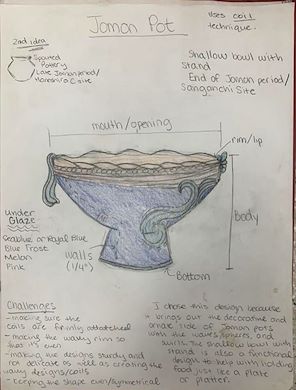 Jomon Pot
Uses coil
technique.
2nd idea
Spouted
Pottery
Late Jomon period/
C site
Shallow bowl with
stand
End of Jomon period/
Sanganchi Site
mouth/opening
rim/lip
Body
Under
Glaze
Seablue or Royal Blue
Blue Frost
Melon
Pink
walls
(1/4")
Bottom
Challenges
- making sure the
coils are firmly attatched
- making the wavy rim so
that its even
- making the designs sturdy and
not delicate as well as creating the
wavy designs/coils
- keeping the shape even/symmetrical
I chose this design because
it brings out the decorative and
ornate side of Jomon pots
with the waves, and
swirls. The shallow bowl with
stand is also a functional
design to help with holding
food just like a plate
or platter.